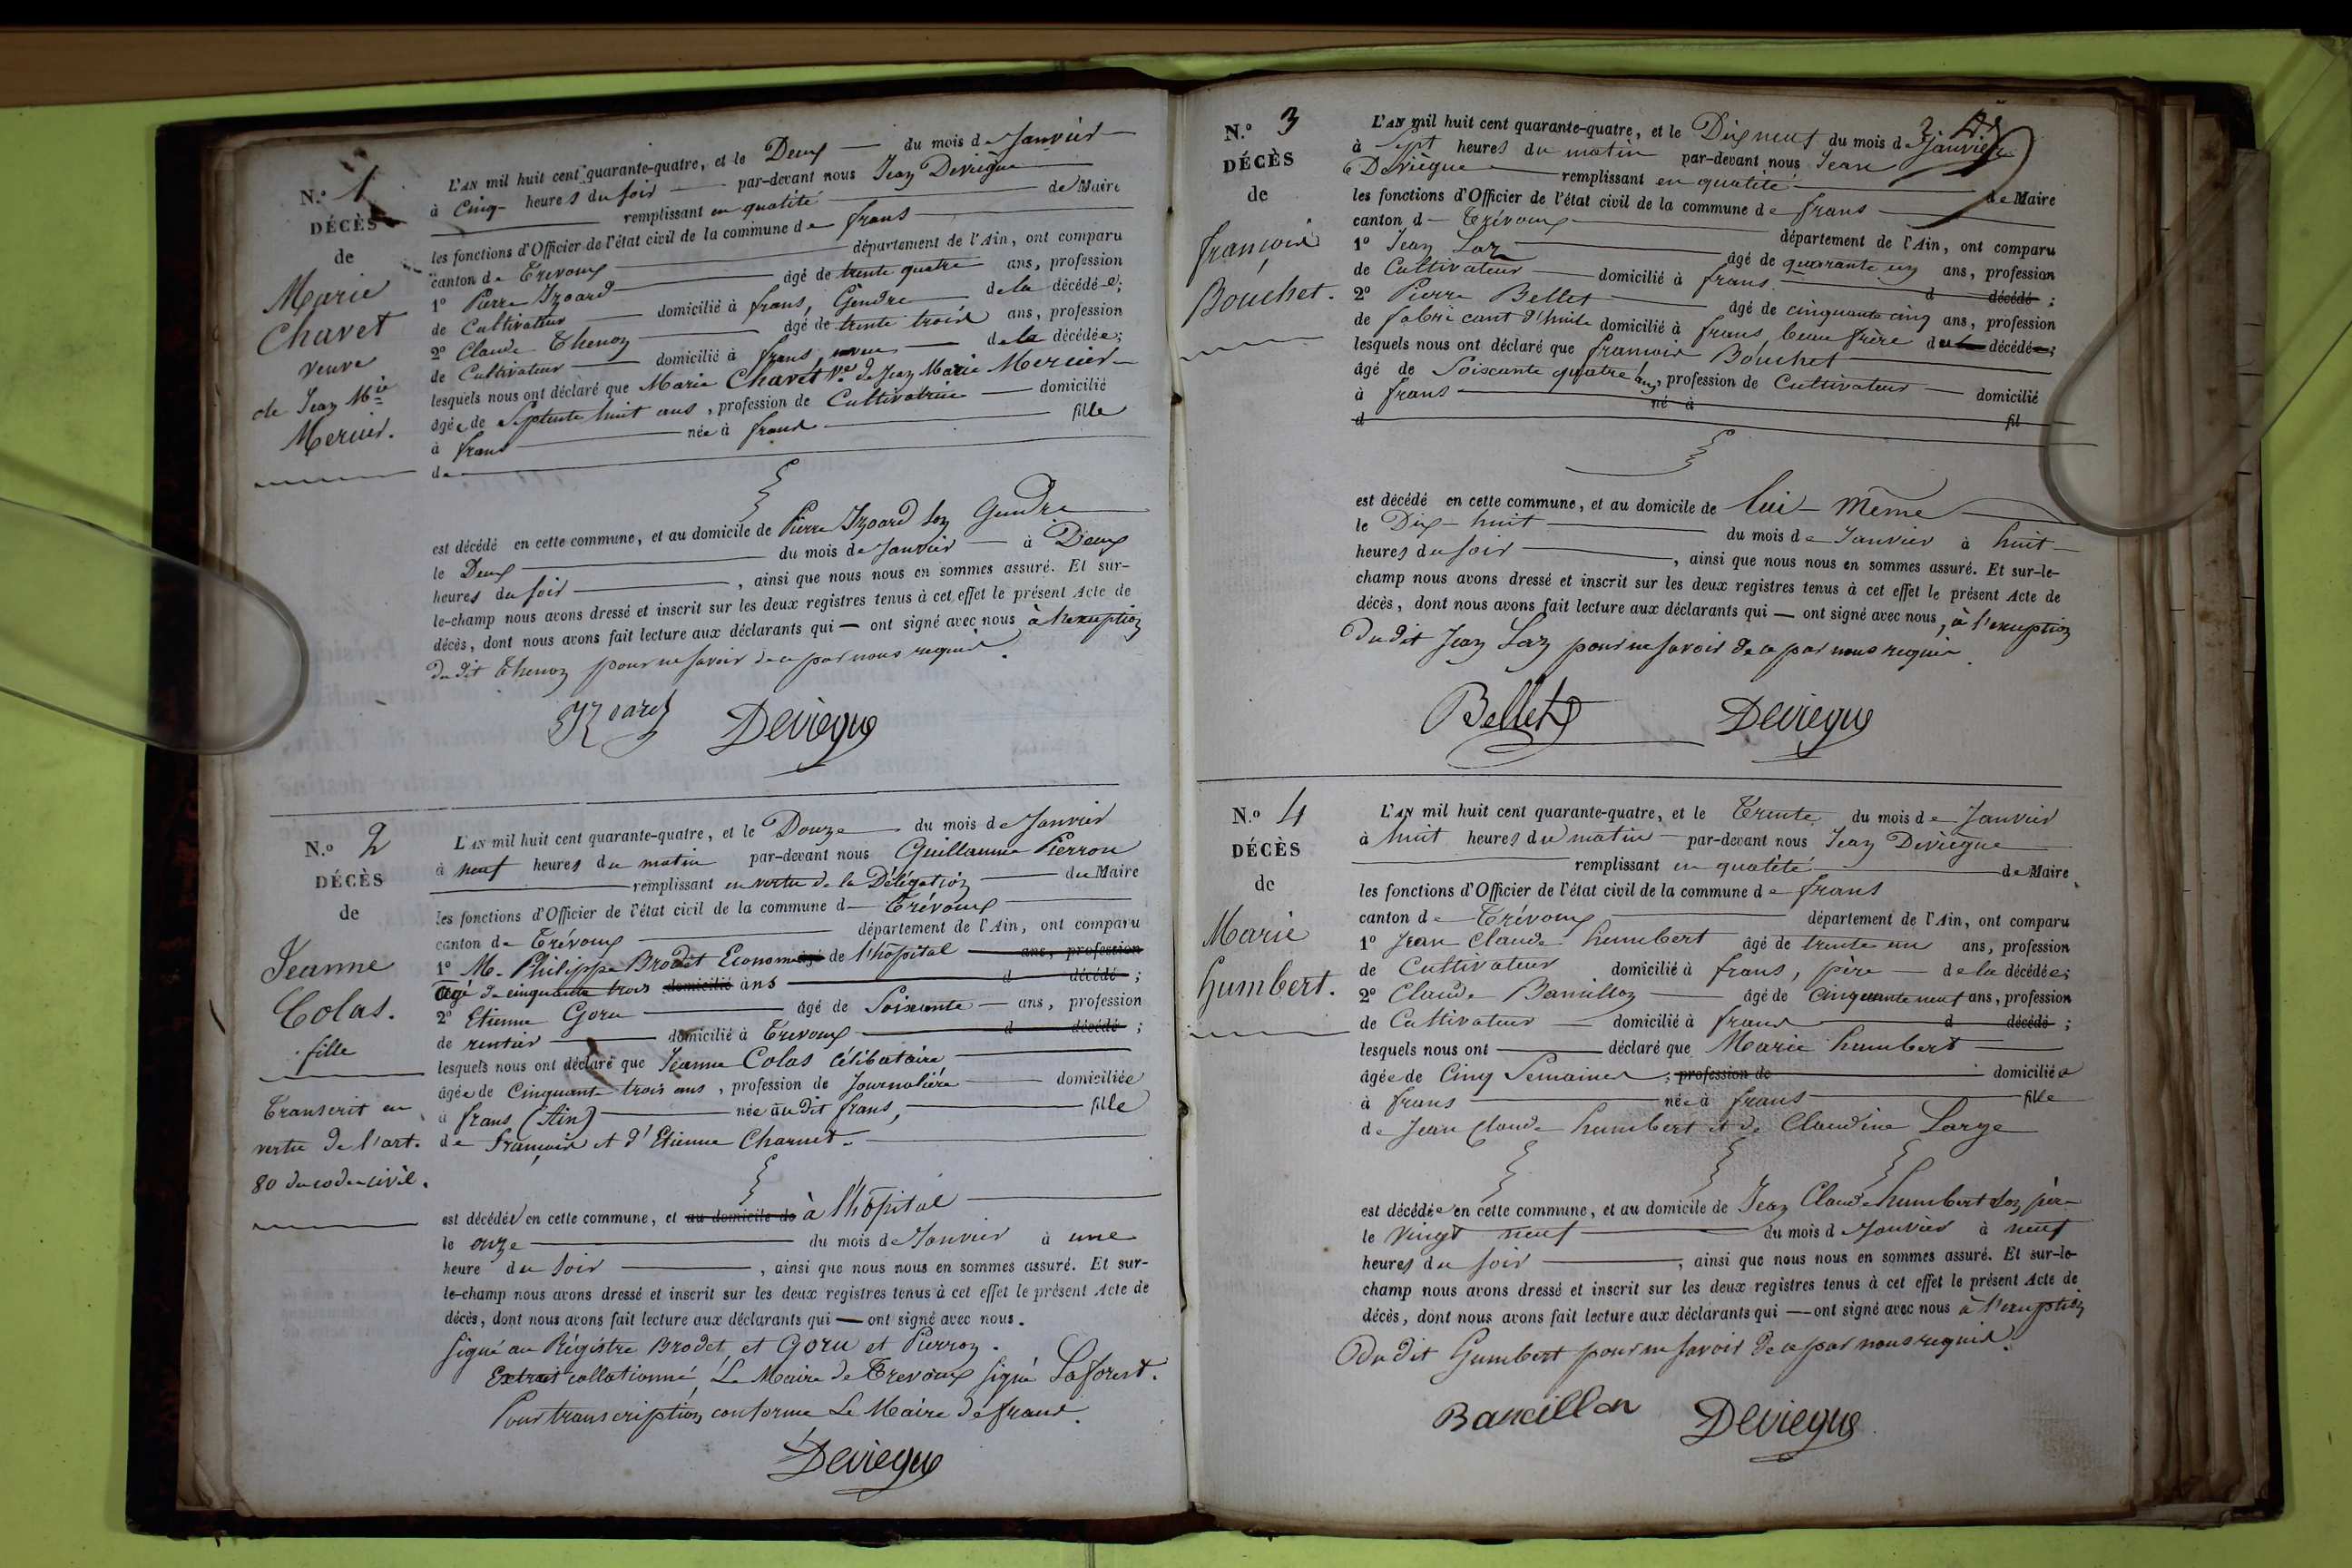 N.º 1
DÉCÈS
de
Marie
Chavet
veuve
de Jean Mie
Mercier.
L'AN mil huit cent quarante-quatre, et le Deux du mois de Janvier
à Cinq heures du soir par-devant nous Jean Deviègue
remplissant en qualité de Maire
les fonctions d'Officier de l'état civil de la commune de frans
canton de Trévoux département de l'Ain, ont comparu
1º Pierre Izoard âgé de trente quatre ans, profession
de Cultivateur domicilié à frans, Gendre de la décédée;
2º Claude Thenon âgé de trente trois ans, profession
de Cultivateur domicilié à frans, neveu de la décédée;
lesquels nous ont déclaré que Marie Chavet Ve de Jean Marie Mercier
âgée de Septente huit ans, profession de Cultivatrice domicilié
à frans née à frans fille
de
est décédé en cette commune, et au domicile de Pierre Izoard son Gendre
le Deux du mois de Janvier à Deux
heures du soir, ainsi que nous nous en sommes assuré. Et sur-
le-champ nous avons dressé et inscrit sur les deux registres tenus à cet effet le présent Acte de
décès, dont nous avons fait lecture aux déclarants qui — ont signé avec nous à l'exception
du dit Thenon pour ne savoir de ce par nous requis.
Deviegue
N.º 2
DÉCÈS
de
Jeanne
Colas.
fille
Transcrit en
vertu de l'art.
80 du code civil.
L'AN mil huit cent quarante-quatre, et le Douze du mois de Janvier
à neuf heures du matin par-devant nous Guillaume Pierron
remplissant en vertu de la Délégation du Maire
les fonctions d'Officier de l'état civil de la commune d Trévoux
canton de Trévoux département de l'Ain, ont comparu
1º M. Philippe Brodet Econome âgé de l'hôpital ans, profession
âgé de cinquante trois domicilié ans d décédé;
2º Etienne Goru âgé de Soixante ans, profession
de rentier domicilié à Trevoux d décédé;
lesquels nous ont déclaré que Jeanne Colas Célibataire
âgée de Cinquante trois ans, profession de Journalière domiciliée
à frans (Ain) née au dit frans, fille
de françois et d'Etienne Charnet.
est décédée en cette commune, et au domicile de à l'hôpital
le onze du mois de Janvier à une
heure du soir, ainsi que nous nous en sommes assuré. Et sur-
le-champ nous avons dressé et inscrit sur les deux registres tenus à cet effet le présent Acte de
décès, dont nous avons fait lecture aux déclarants qui — ont signé avec nous.
signé au Régistre Brodet, et Goru et Pierron.
Extrait collationné, Le Maire de Trevoux signé Laforest.
Pour transcription conforme Le Maire de frans.
Deviegue
N.º 3
DÉCÈS
de
françois
Bouchet.
L'AN mil huit cent quarante-quatre, et le Dix neuf du mois de Janvier
à Sept heures du matin par-devant nous Jean
Deviègue remplissant en qualité de Maire
les fonctions d'Officier de l'état civil de la commune de frans
canton d Trévoux département de l'Ain, ont comparu
1º Jean Laz âgé de quarante un ans, profession
de Cultivateur domicilié à frans d décédé;
2º Pierre Bellet âgé de cinquante cinq ans, profession
de fabricant d'huile domicilié à frans, beau frère du décédé;
lesquels nous ont déclaré que françois Bouchet
âgé de Soixante quatre ans, profession de Cultivateur domicilié
à frans né à
d fil
est décédé en cette commune, et au domicile de lui-même
le Dix-huit du mois de Janvier à huit
heures du soir, ainsi que nous nous en sommes assuré. Et sur-le-
champ nous avons dressé et inscrit sur les deux registres tenus à cet effet le présent Acte de
décès, dont nous avons fait lecture aux déclarants qui — ont signé avec nous, à l'exception
Du dit Jean Laz pour ne savoir de ce par nous requis.
Bellet Deviegue
N.º 4
DÉCÈS
de
Marie
humbert.
L'AN mil huit cent quarante-quatre, et le Trente du mois de Janvier
à huit heures du matin par-devant nous Jean Deviègue
remplissant en qualité de Maire
les fonctions d'Officier de l'état civil de la commune de frans
canton de Trévoux département de l'Ain, ont comparu
1º Jean Claude humbert âgé de trente un ans, profession
de Cultivateur domicilié à frans, père de la décédée;
2º Claude Bancillon âgé de Cinquante neuf ans, profession
de Cultivateur domicilié à frans d décédé;
lesquels nous ont déclaré que Marie humbert
âgée de Cinq Semaines, profession de domiciliée
à frans née à frans fille
de Jean Claude humbert et de Claudine Large
est décédée en cette commune, et au domicile de Jean Claude humbert son père
le Vingt neuf du mois d Janvier à neuf
heures du soir, ainsi que nous nous en sommes assuré. Et sur-le-
champ nous avons dressé et inscrit sur les deux registres tenus à cet effet le présent Acte de
décès, dont nous avons fait lecture aux déclarants qui — ont signé avec nous à l'exception
du dit humbert pour ne savoir de ce par nous requis.
Bancillon Deviegue